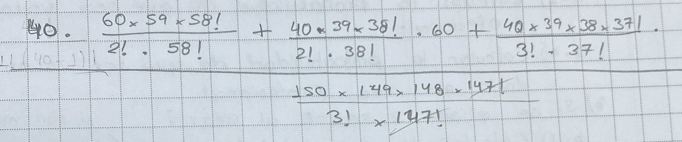 40. (60 × 59 × 58!)/(2! . 58!) + (40 × 39 × 38!)/(2! . 38!) . 60 + (40 × 39 × 38 × 37!)/(3! . 37!) .
(150 × 149 × 148 × 147!)/(3! × 147!)